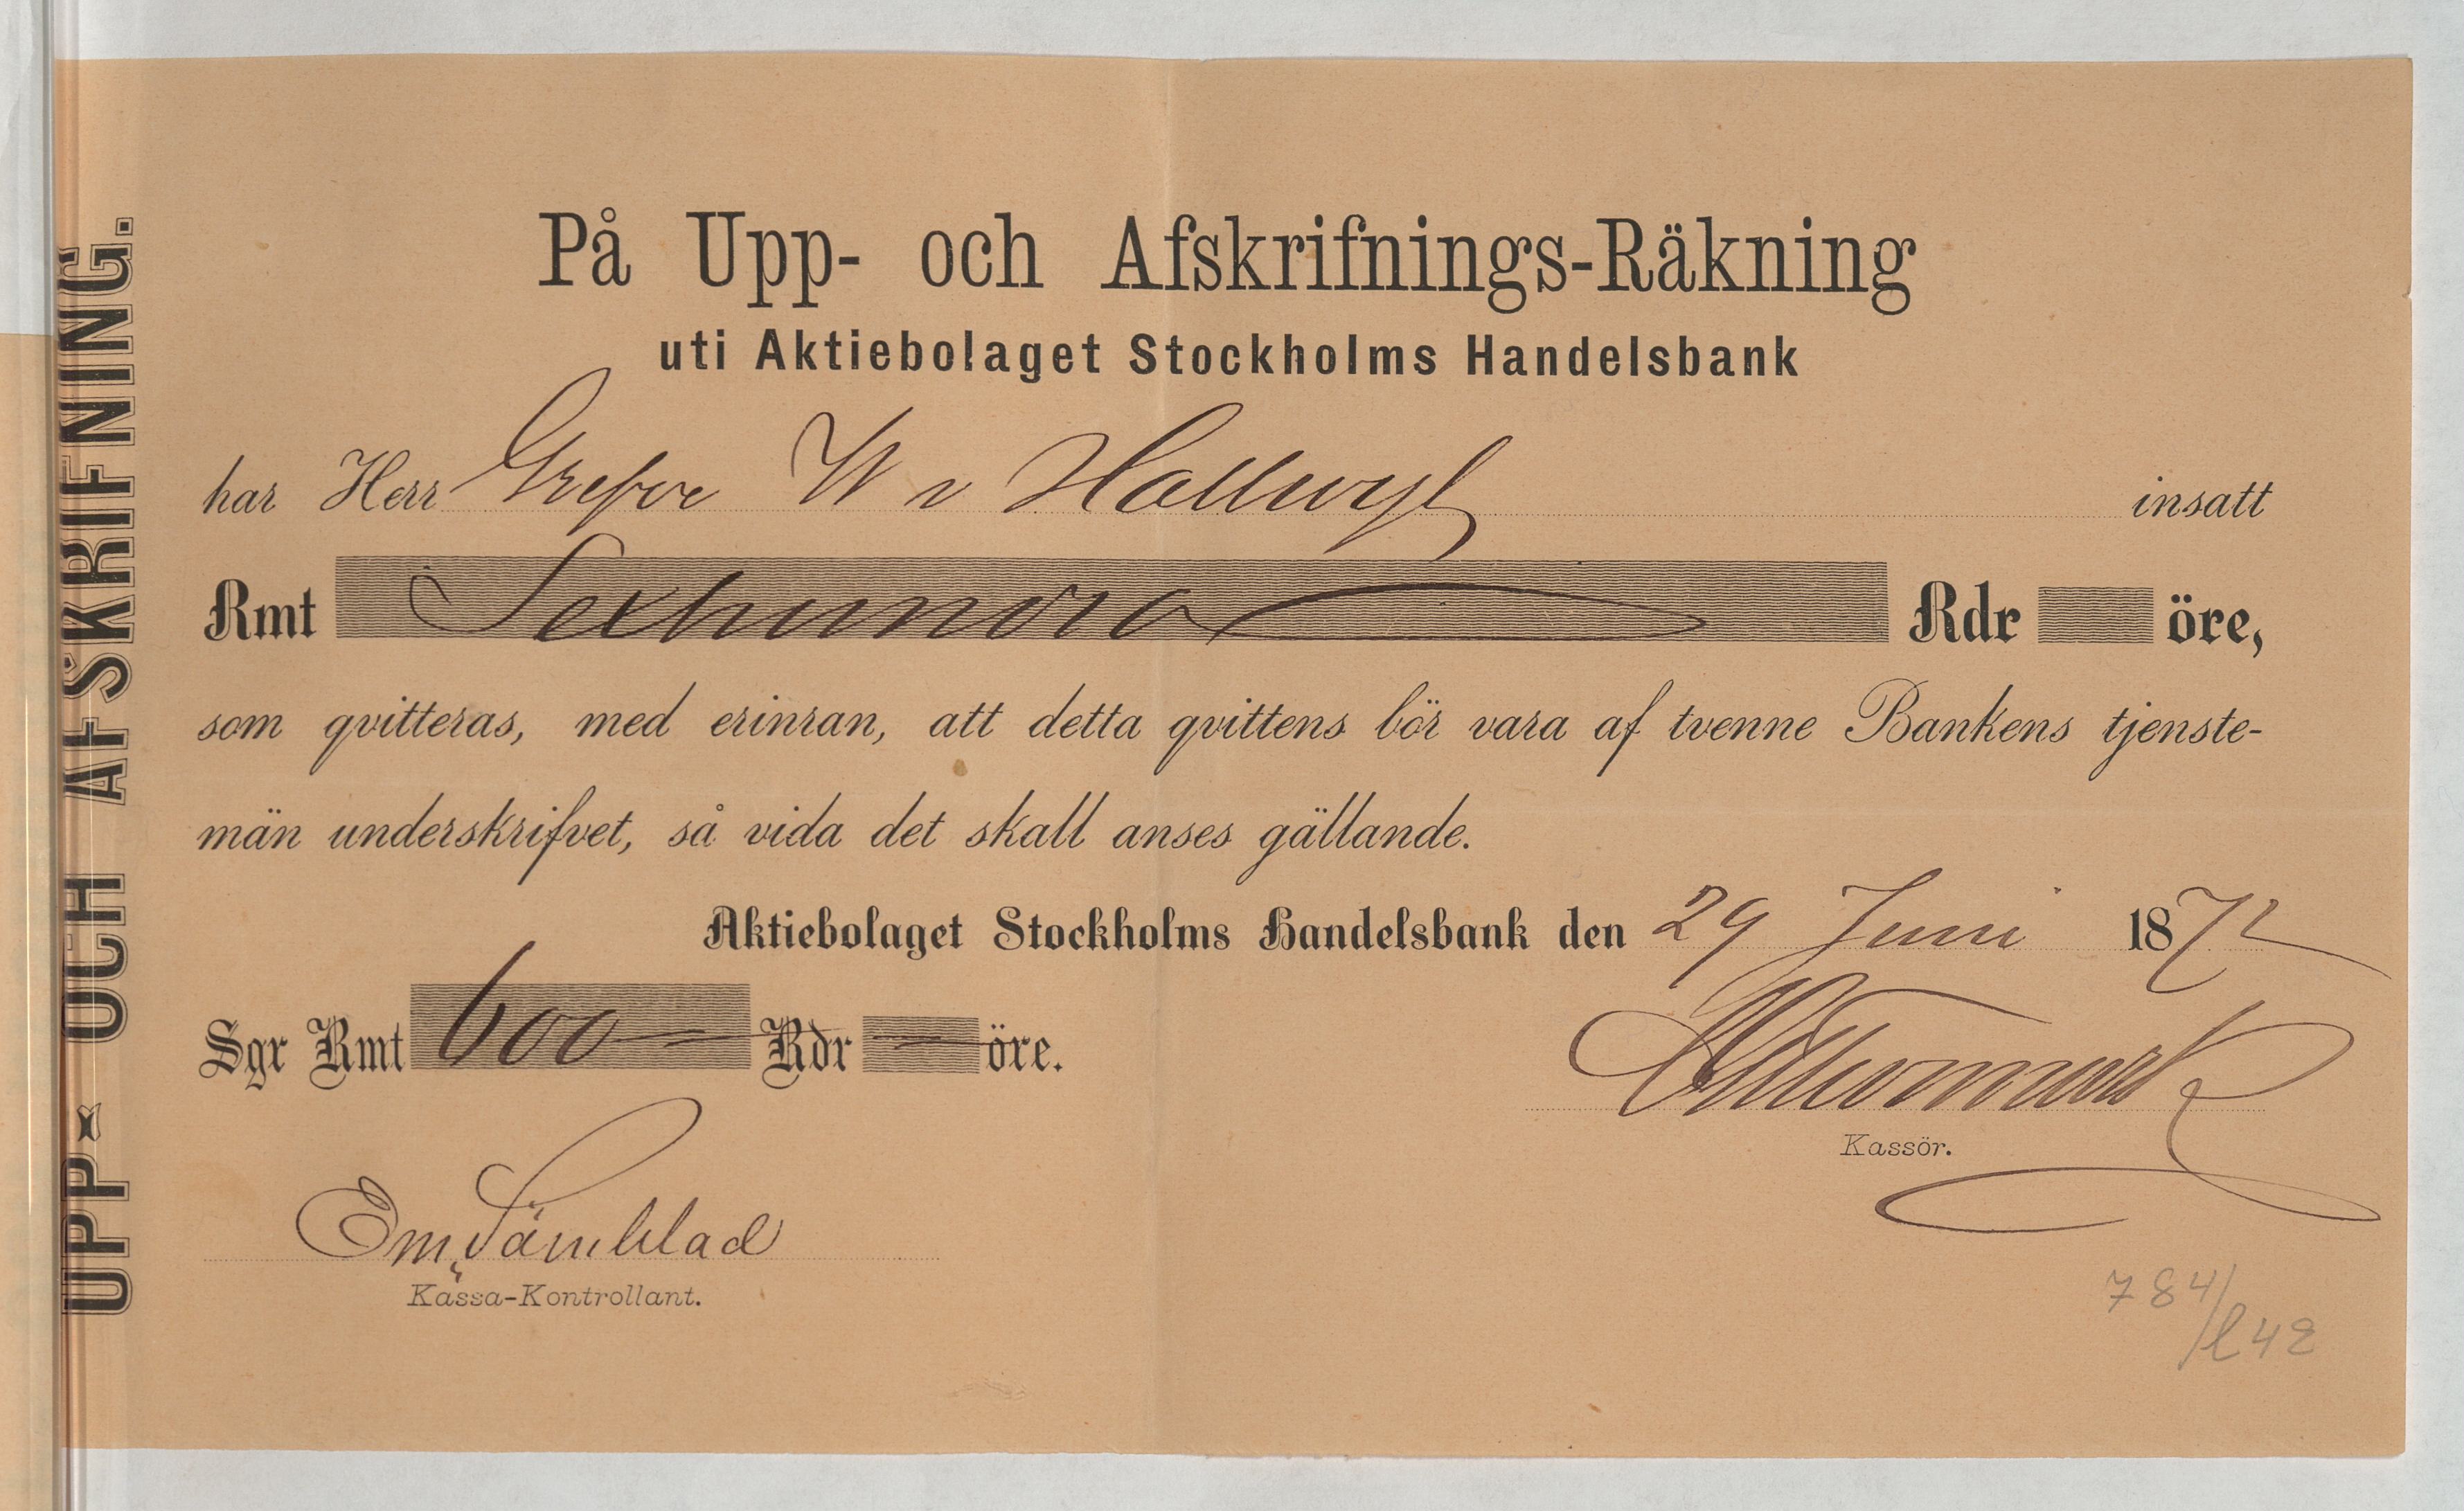 UPP- OCH AFSKRIFNING.
På Upp- och Afskrifnings-Räkning
uti Aktiebolaget Stockholms Handelsbank
har Herr Grefve W v Hallwyl insatt
Rmt Sexhundra Rdr öre,
som qvitteras, med erinran, att detta qvittens bör vara af tvenne Bankens tjenste-
män underskrifvet, så vida det skall anses gällande.
Aktiebolaget Stockholms Handelsbank den 29 Juni 1872
Sgr Rmt 600 Rdr öre.
Kassör.
Em
Kassa-Kontrollant.
784/